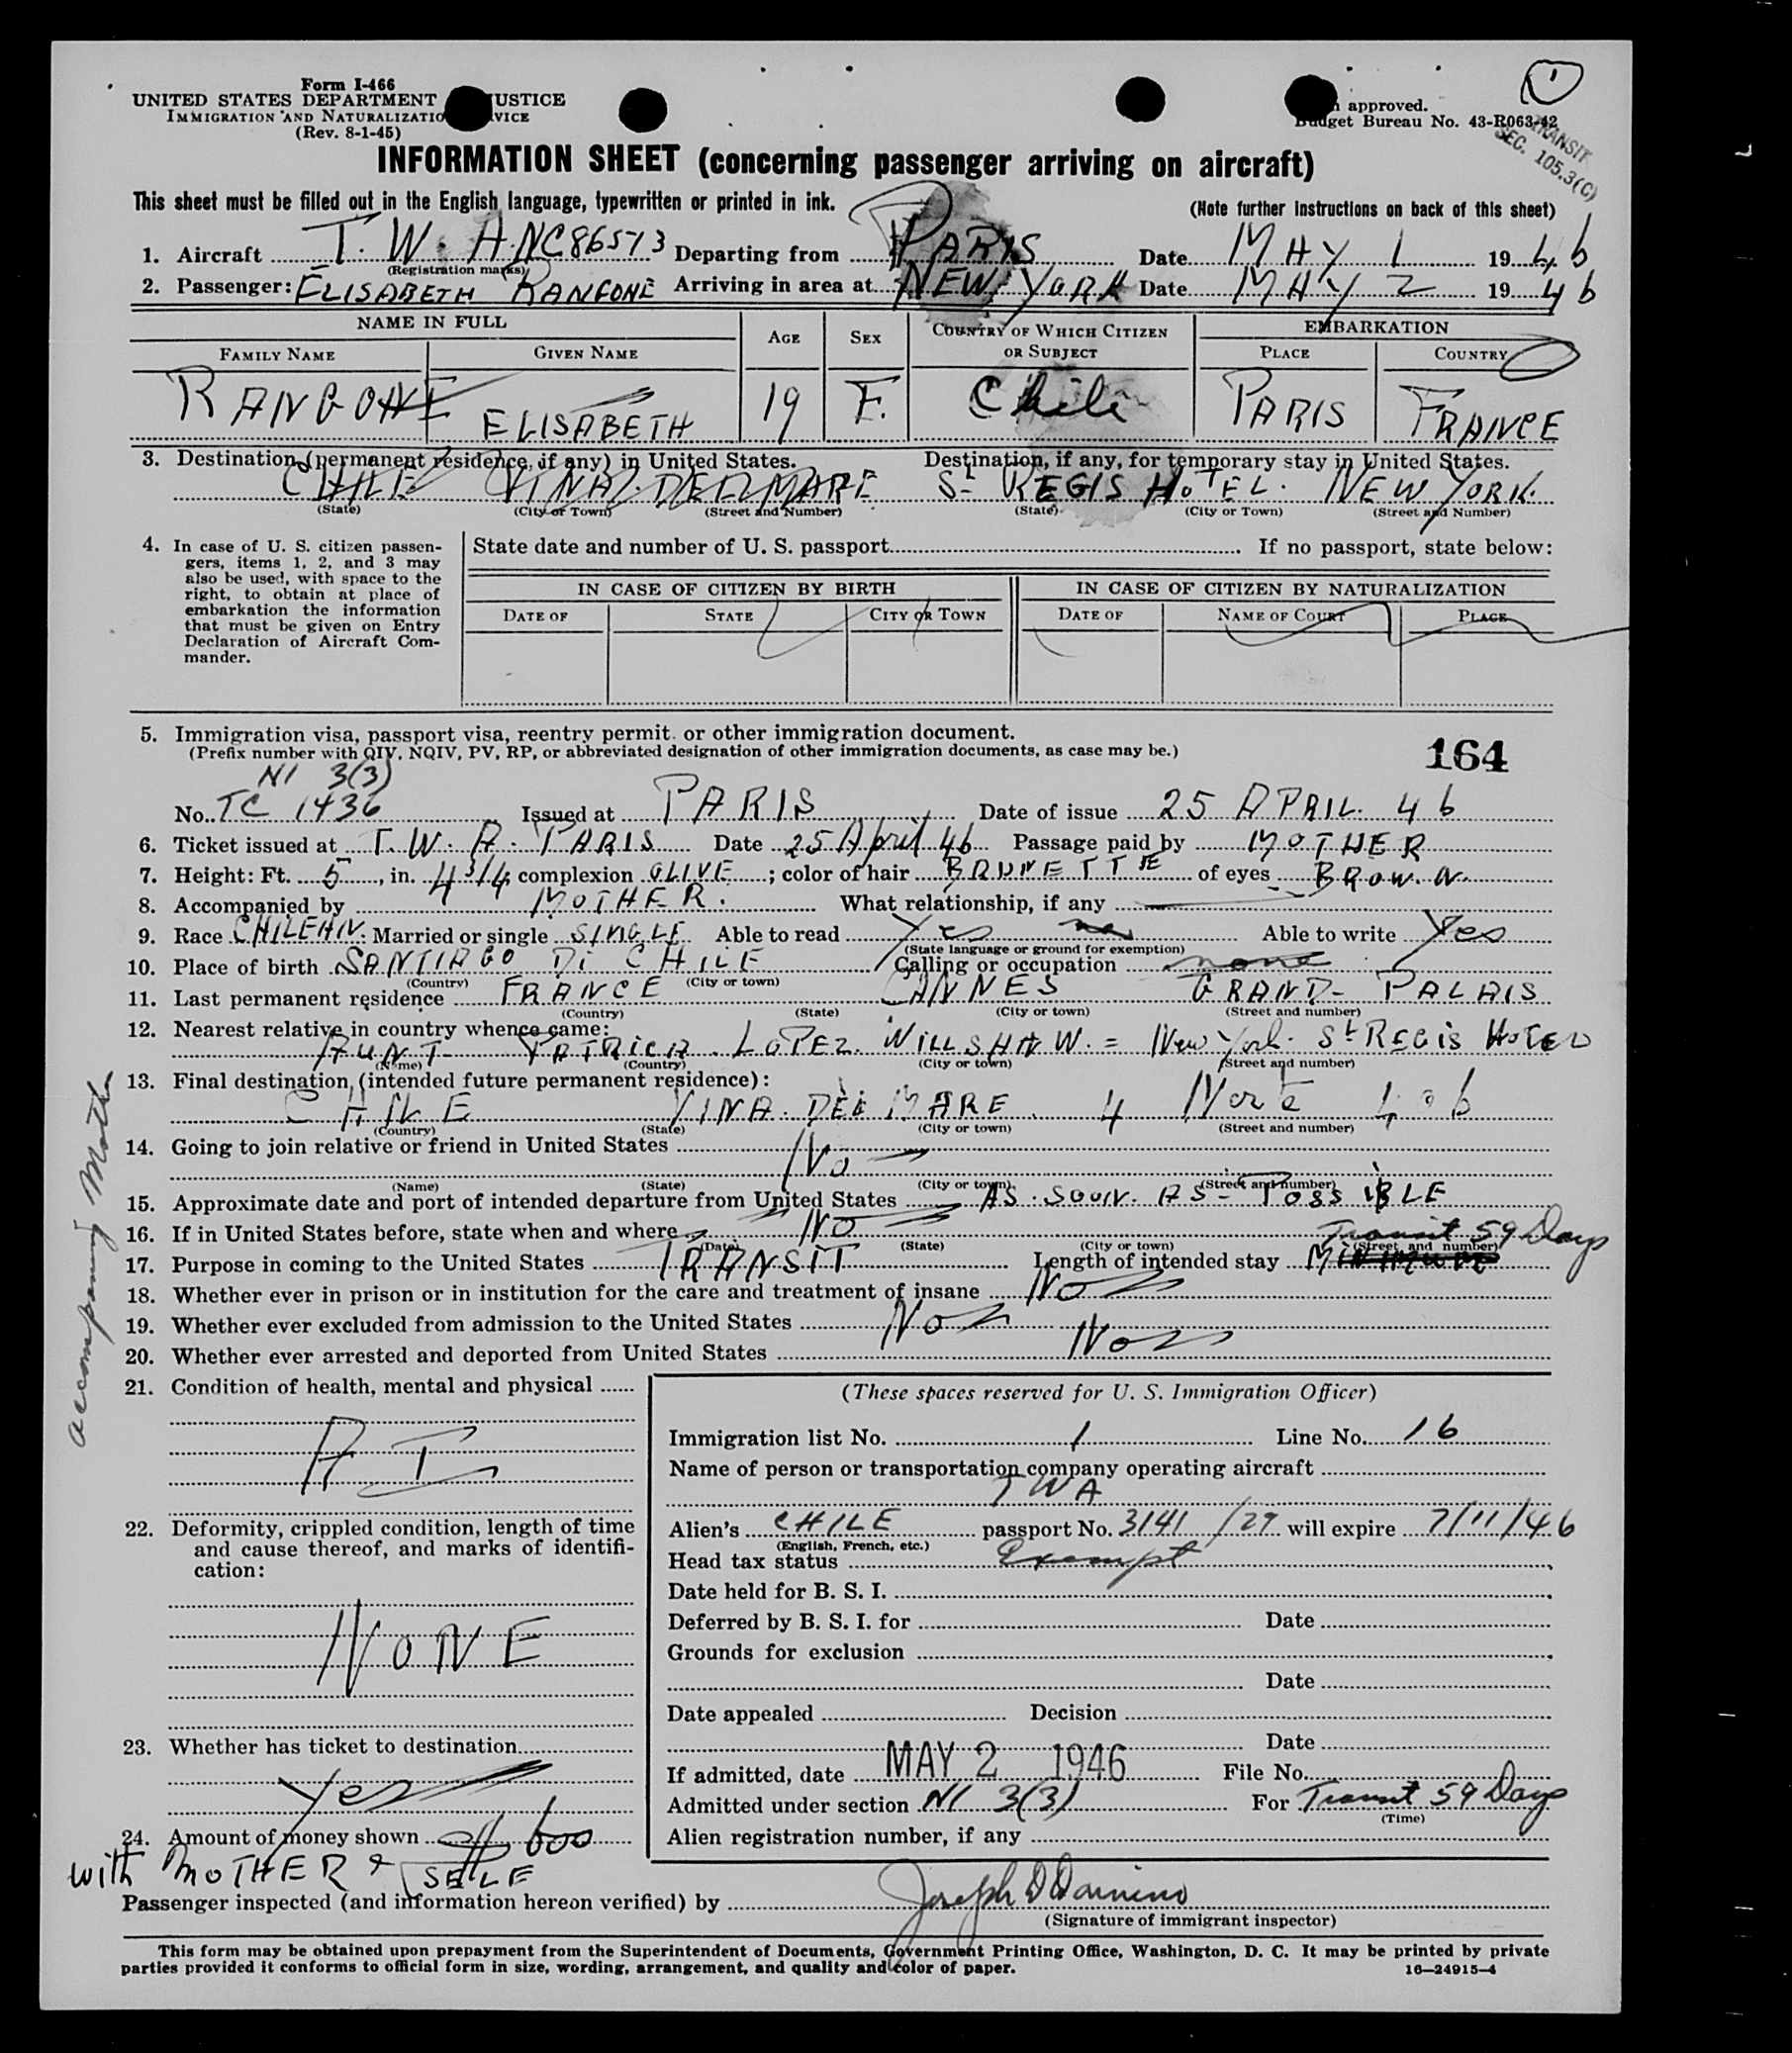 Form I-466
UNITED STATES DEPARTMENT JUSTICE
IMMIGRATION AND NATURALIZATIO VICE
(Rev. 8-1-45)
approved.
Budget Bureau No. 43-R063-42
TRANSIT
SEC. 105.3(C)
INFORMATION SHEET (concerning passenger arriving on aircraft)
This sheet must be filled out in the English language, typewritten or printed in ink.
(Note further instructions on back of this sheet)
1. Aircraft T.W.A. NC86513 Departing from PARIS Date MAY 1 1946
(Registration marks)
2. Passenger: ELISABETH RANGONE Arriving in area at NEW YORK Date MAY 2 1946
NAME IN FULL AGE SEX COUNTRY OF WHICH CITIZEN OR SUBJECT EMBARKATION
FAMILY NAME GIVEN NAME PLACE COUNTRY
RANGONE ELISABETH 19 F. Chili PARIS FRANCE
3. Destination (permanent residence, if any) in United States. Destination, if any, for temporary stay in United States.
CHILE VINA DEL MARE St REGIS HOTEL. NEW YORK.
(State) (City or Town) (Street and Number) (State) (City or Town) (Street and Number)
4. In case of U. S. citizen passengers, items 1, 2, and 3 may also be used, with space to the right, to obtain at place of embarkation the information that must be given on Entry Declaration of Aircraft Commander.
State date and number of U. S. passport If no passport, state below:
IN CASE OF CITIZEN BY BIRTH IN CASE OF CITIZEN BY NATURALIZATION
DATE OF STATE CITY OR TOWN DATE OF NAME OF COURT PLACE
5. Immigration visa, passport visa, reentry permit or other immigration document.
(Prefix number with QIV, NQIV, PV, RP, or abbreviated designation of other immigration documents, as case may be.)
164
NI 3(3)
No. TC 1436 Issued at PARIS Date of issue 25 APRIL. 46
6. Ticket issued at T.W.A. PARIS Date 25 April 46 Passage paid by MOTHER
7. Height: Ft. 5, in. 4 3/4, complexion OLIVE; color of hair BRUNETTE of eyes BROWN.
8. Accompanied by MOTHER. What relationship, if any
9. Race CHILEAN. Married or single SINGLE Able to read Yes Able to write Yes
(State language or ground for exemption)
10. Place of birth SANTIAGO DI CHILE Calling or occupation none
(Country) (City or town)
11. Last permanent residence FRANCE CANNES GRAND- PALAIS
(Country) (State) (City or town) (Street and number)
12. Nearest relative in country whence came:
AUNT PATRICIA. LOPEZ. WILLSHAW. = New York. St REGIS HOTEL
(Name) (Country) (City or town) (Street and number)
13. Final destination (intended future permanent residence):
CHILE VINA. DEL MARE. 4 Norte 406
(Country) (State) (City or town) (Street and number)
14. Going to join relative or friend in United States No
(Name) (State) (City or town) (Street and number)
15. Approximate date and port of intended departure from United States AS. SOON. AS- POSSIBLE
16. If in United States before, state when and where NO
(Date) (State) (City or town) (Street and number)
Transit 59 Days
17. Purpose in coming to the United States TRANSIT Length of intended stay
18. Whether ever in prison or in institution for the care and treatment of insane No
19. Whether ever excluded from admission to the United States No
20. Whether ever arrested and deported from United States No
accompanying Mother
21. Condition of health, mental and physical
A I
22. Deformity, crippled condition, length of time and cause thereof, and marks of identification:
NONE
23. Whether has ticket to destination
Yes
24. Amount of money shown $ 600
with MOTHER &
(These spaces reserved for U. S. Immigration Officer)
Immigration list No. 1 Line No. 16
Name of person or transportation company operating aircraft
TWA
Alien's CHILE passport No. 3141/29 will expire 7/11/46
(English, French, etc.)
Head tax status Exempt
Date held for B. S. I.
Deferred by B. S. I. for Date
Grounds for exclusion
Date
Date appealed Decision
Date
If admitted, date MAY 2 1946 File No.
Admitted under section NI 3(3) For Transit 59 Days
(Time)
Alien registration number, if any
Passenger inspected (and information hereon verified) by Joseph D
(Signature of immigrant inspector)
This form may be obtained upon prepayment from the Superintendent of Documents, Government Printing Office, Washington, D. C. It may be printed by private
parties provided it conforms to official form in size, wording, arrangement, and quality and color of paper.
16—24915-4